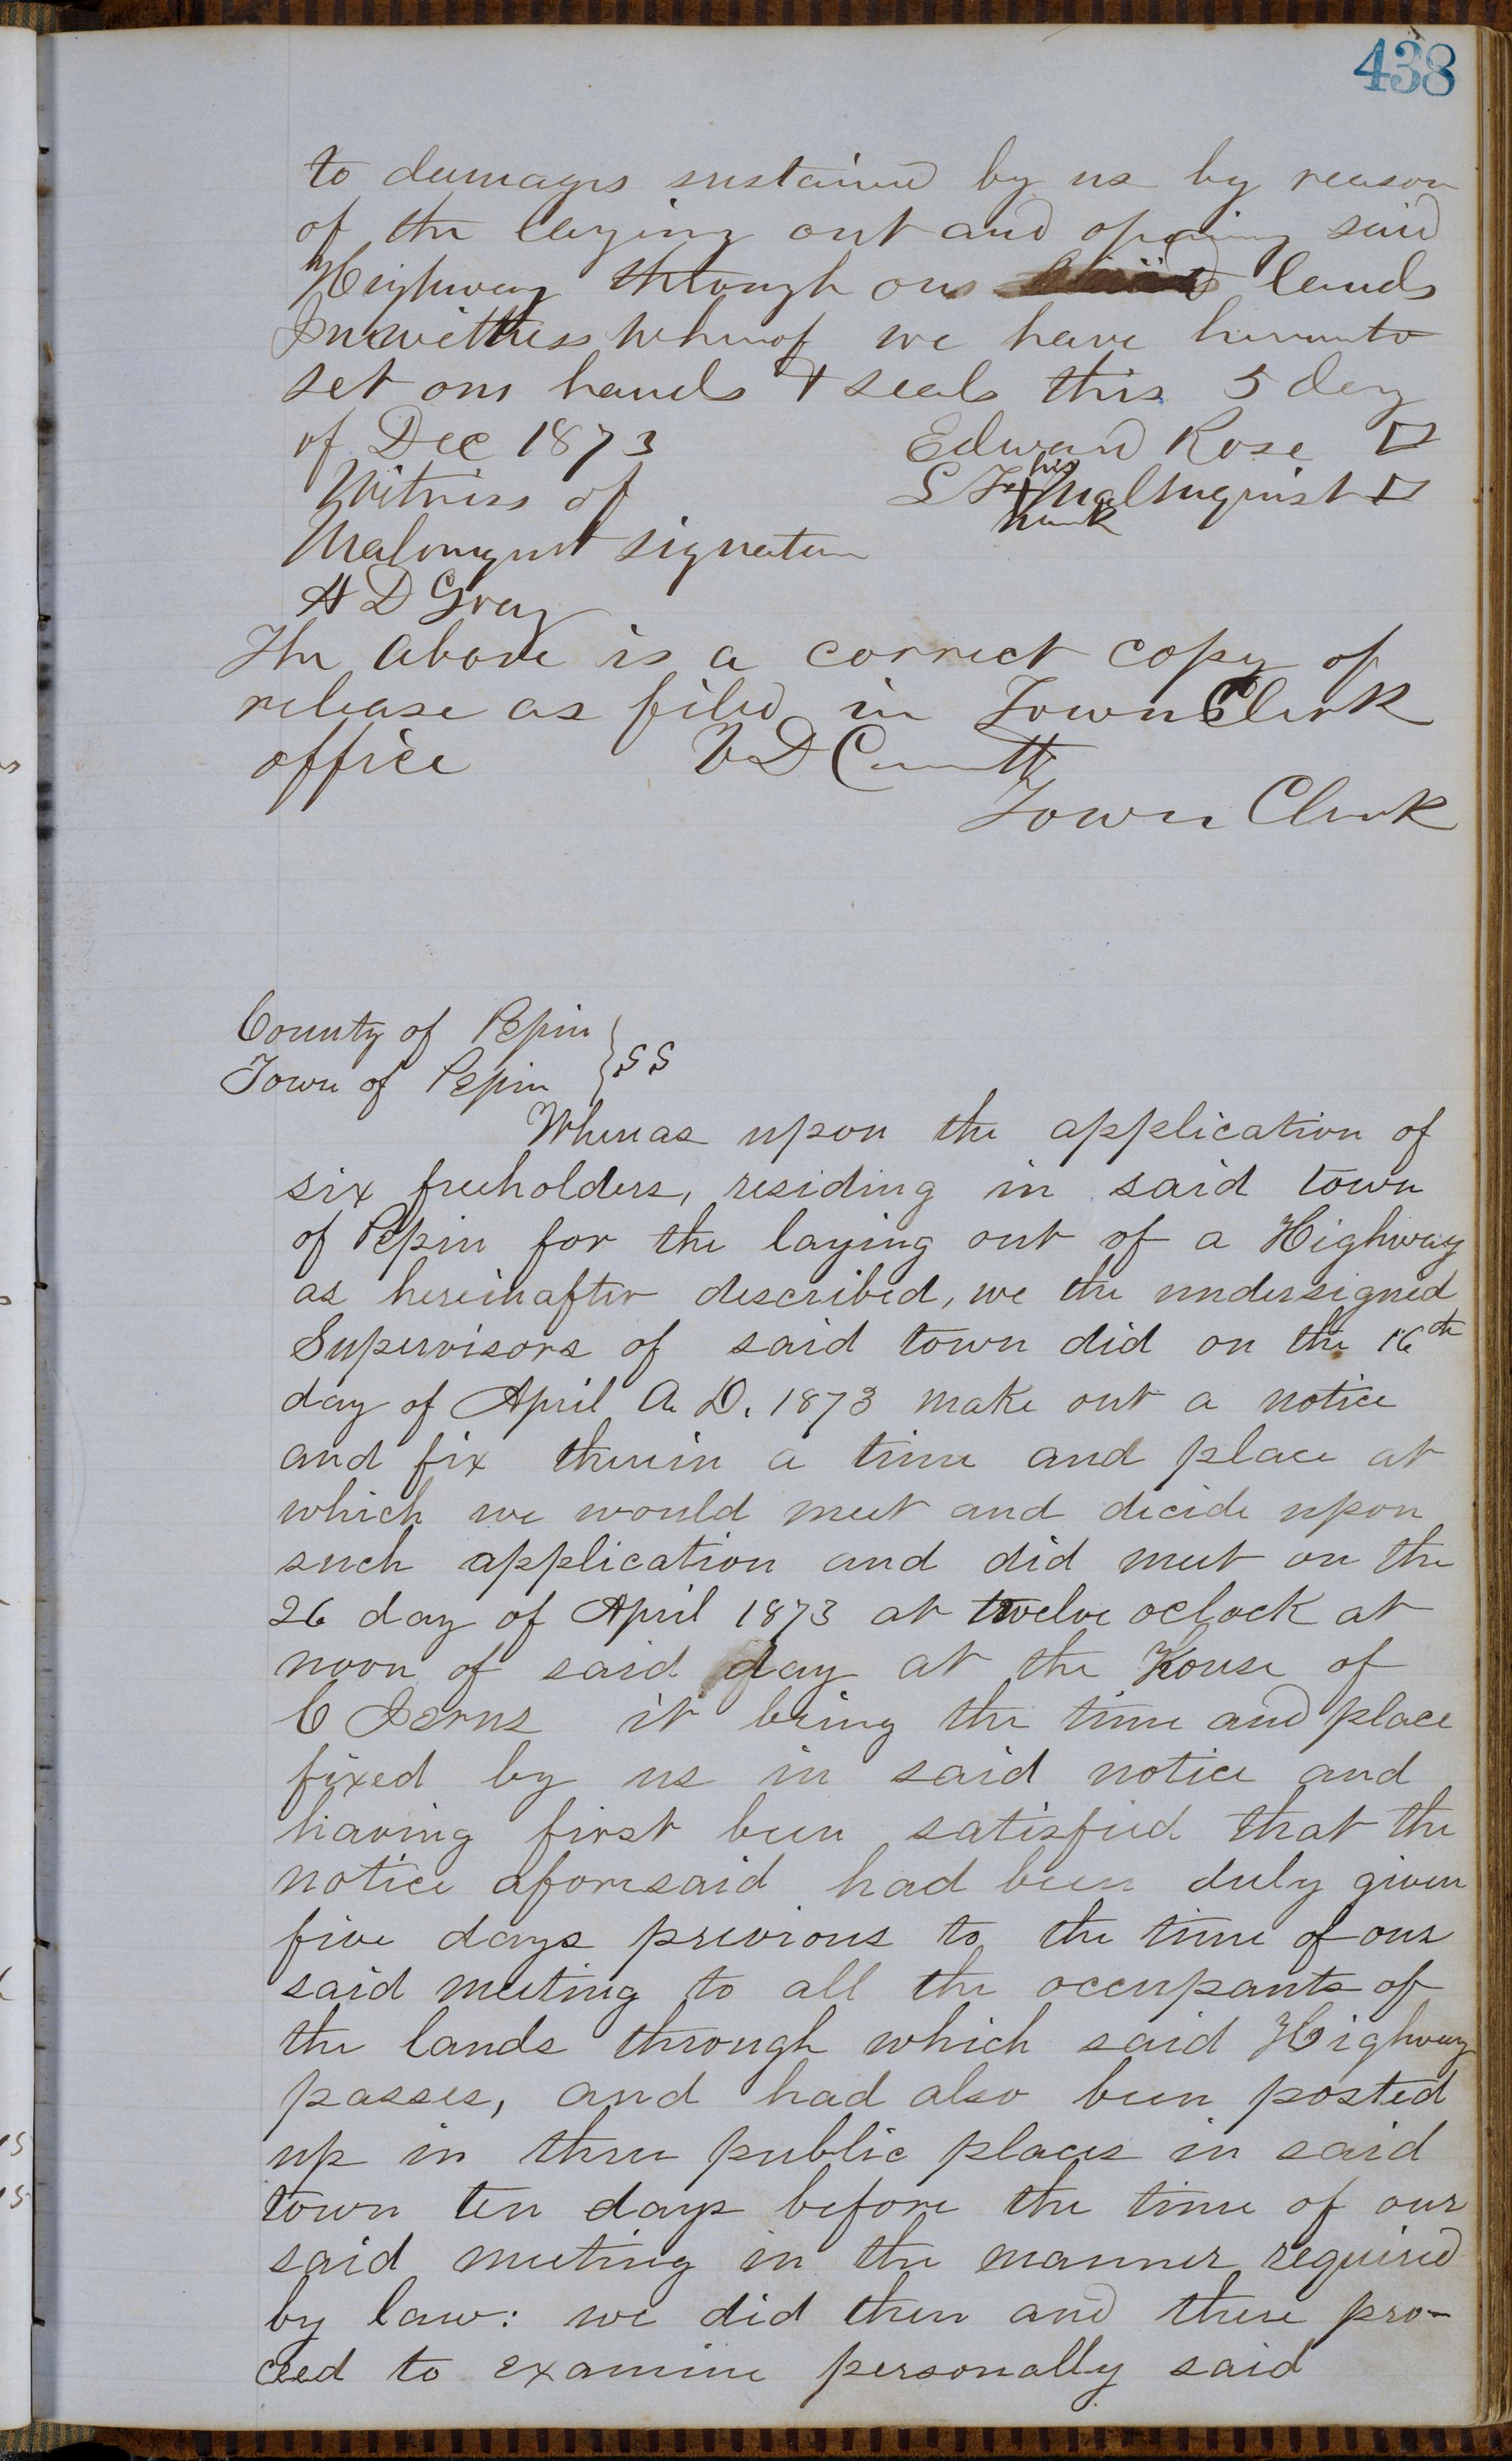 438
to damages sustained by us by reason
of the laying out and opening said
Highway through our lands
In witness whereof we have hereunto
set our hands & seals this 5 day
of Dec 1873 Edward Rose
Witness of S his Malmquist
mark
Malmquist signature
H D Gray
The above is a correct copy of
release as filed in Town Clerk
office V D C
Town Clerk
County of Pepin
Town of Pepin } SS
Whereas upon the application of
six freeholders, residing in said town
of Pepin for the laying out of a Highway
as hereinafter described, we the undersigned
Supervisors of said town did on the 16th
day of April A. D. 1873 make out a notice
and fix therein a time and place at
which we would meet and decide upon
such application and did meet on the
26 day of April 1873 at twelve oclock at
noon of said day at the House of
C it being the time and place
fixed by us in said notice and
having first been satisfied that the
notice aforesaid had been duly given
five days previous to the time of our
said meeting to all the occupants of
the lands through which said Highway
passes, and had also been posted
up in three public places in said
town ten days before the time of our
said meeting in the manner required
by law: we did then and there pro-
ceed to examine personally said